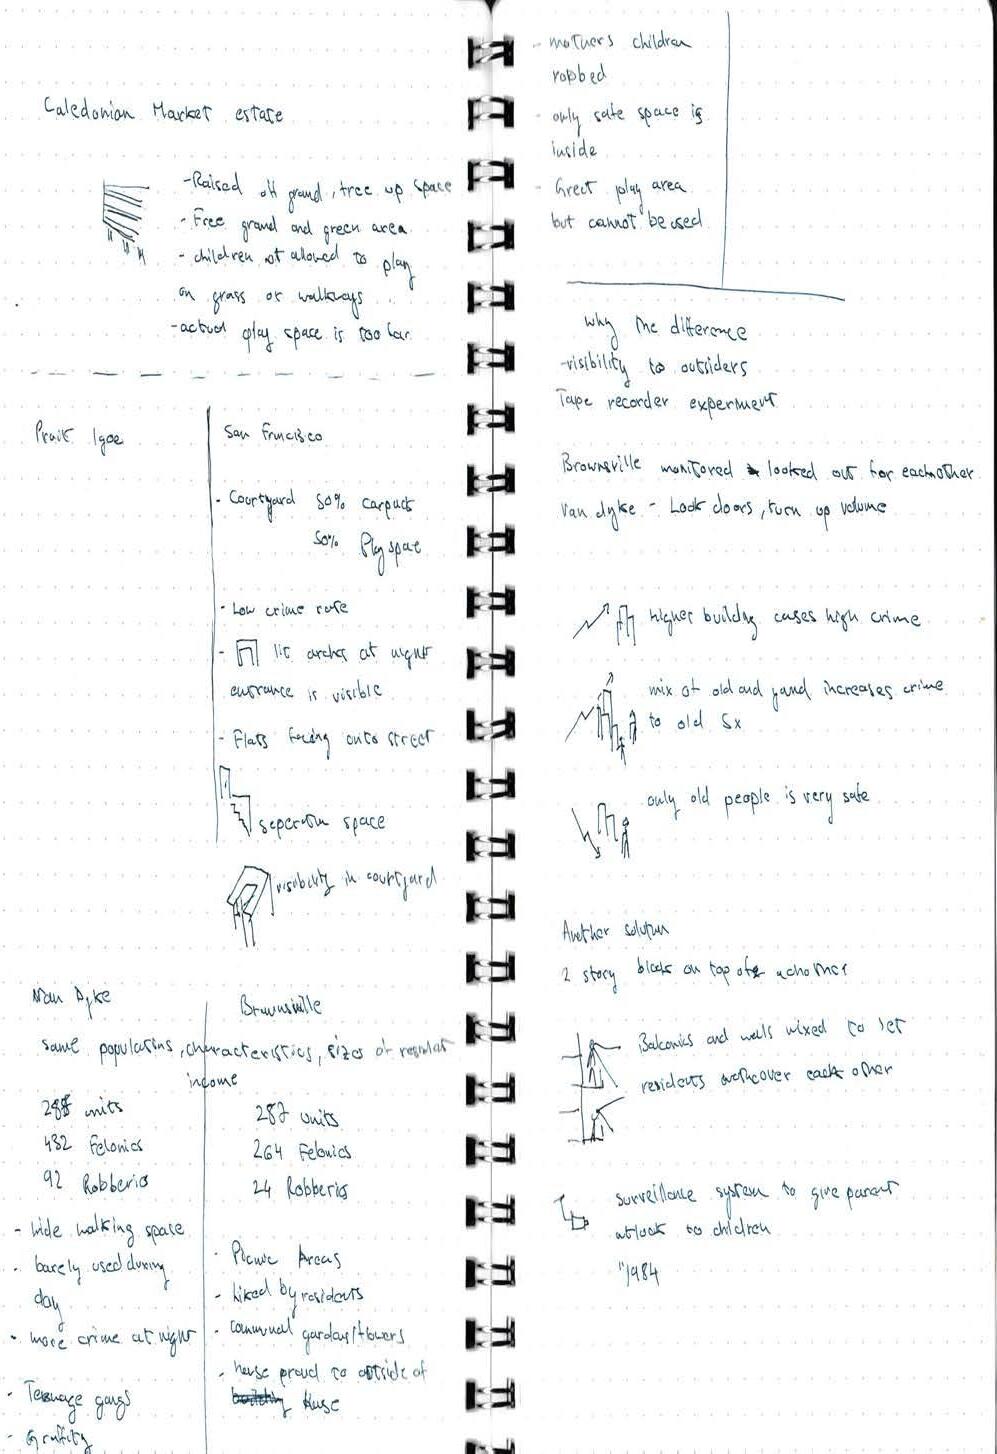 Caledonian Market estate
-Raised off grand, free up space
- Free grand and green area
- children not allowed to play
on grass or walkways
-actual play space is too far
Pruit Igoe
San Francisco
- Courtyard 50% carparks
50% Play space
- Low crime rate
- lit arches at night
entrance is visible
- Flats facing onto street
seperation space
visibility in courtyard
Van Dyke
Brownsville
same populations, characteristics, sizes of
income
units
287 units
432 Felonies
264 Felonies
92 Robberies
24 Robberies
- wide walking space
- barely used during
day
- more crime at night
- Teenage gangs
- Graffity
- Picnic Areas
- Liked by residents
- communal gardens/flowers
- house proud to outside of
House
- mothers children
robbed
- only safe space is
inside
- Great play area
but cannot be used
why the difference
-visibility to outsiders
Tape recorder experiment
Brownsville monitored & looked out for eachother
Van dyke - Lock doors, turn up volume
higher building cases high crime
mix of old and increases crime
to old 5x
only old people is very safe
Another solution
2 story blocks on top of
Balconies and walls mixed to let
residents each other
surveillance system to give parent
to children
"1984